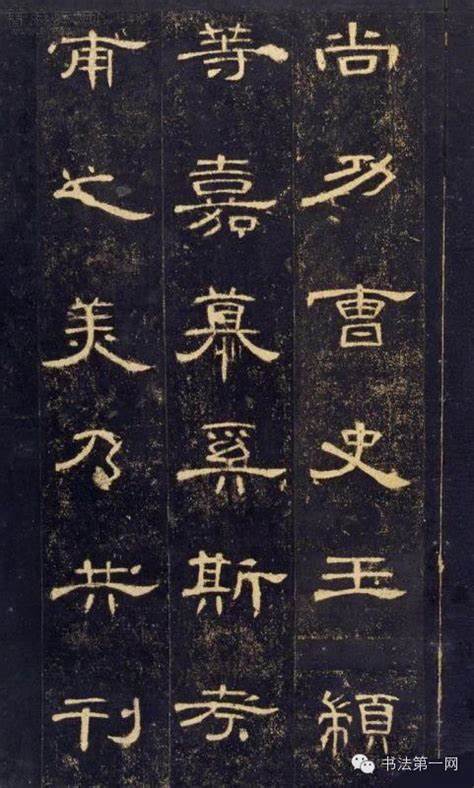 尚功曹史王顓
等嘉慕奚斯考
甫之美乃共刊
书法第一网